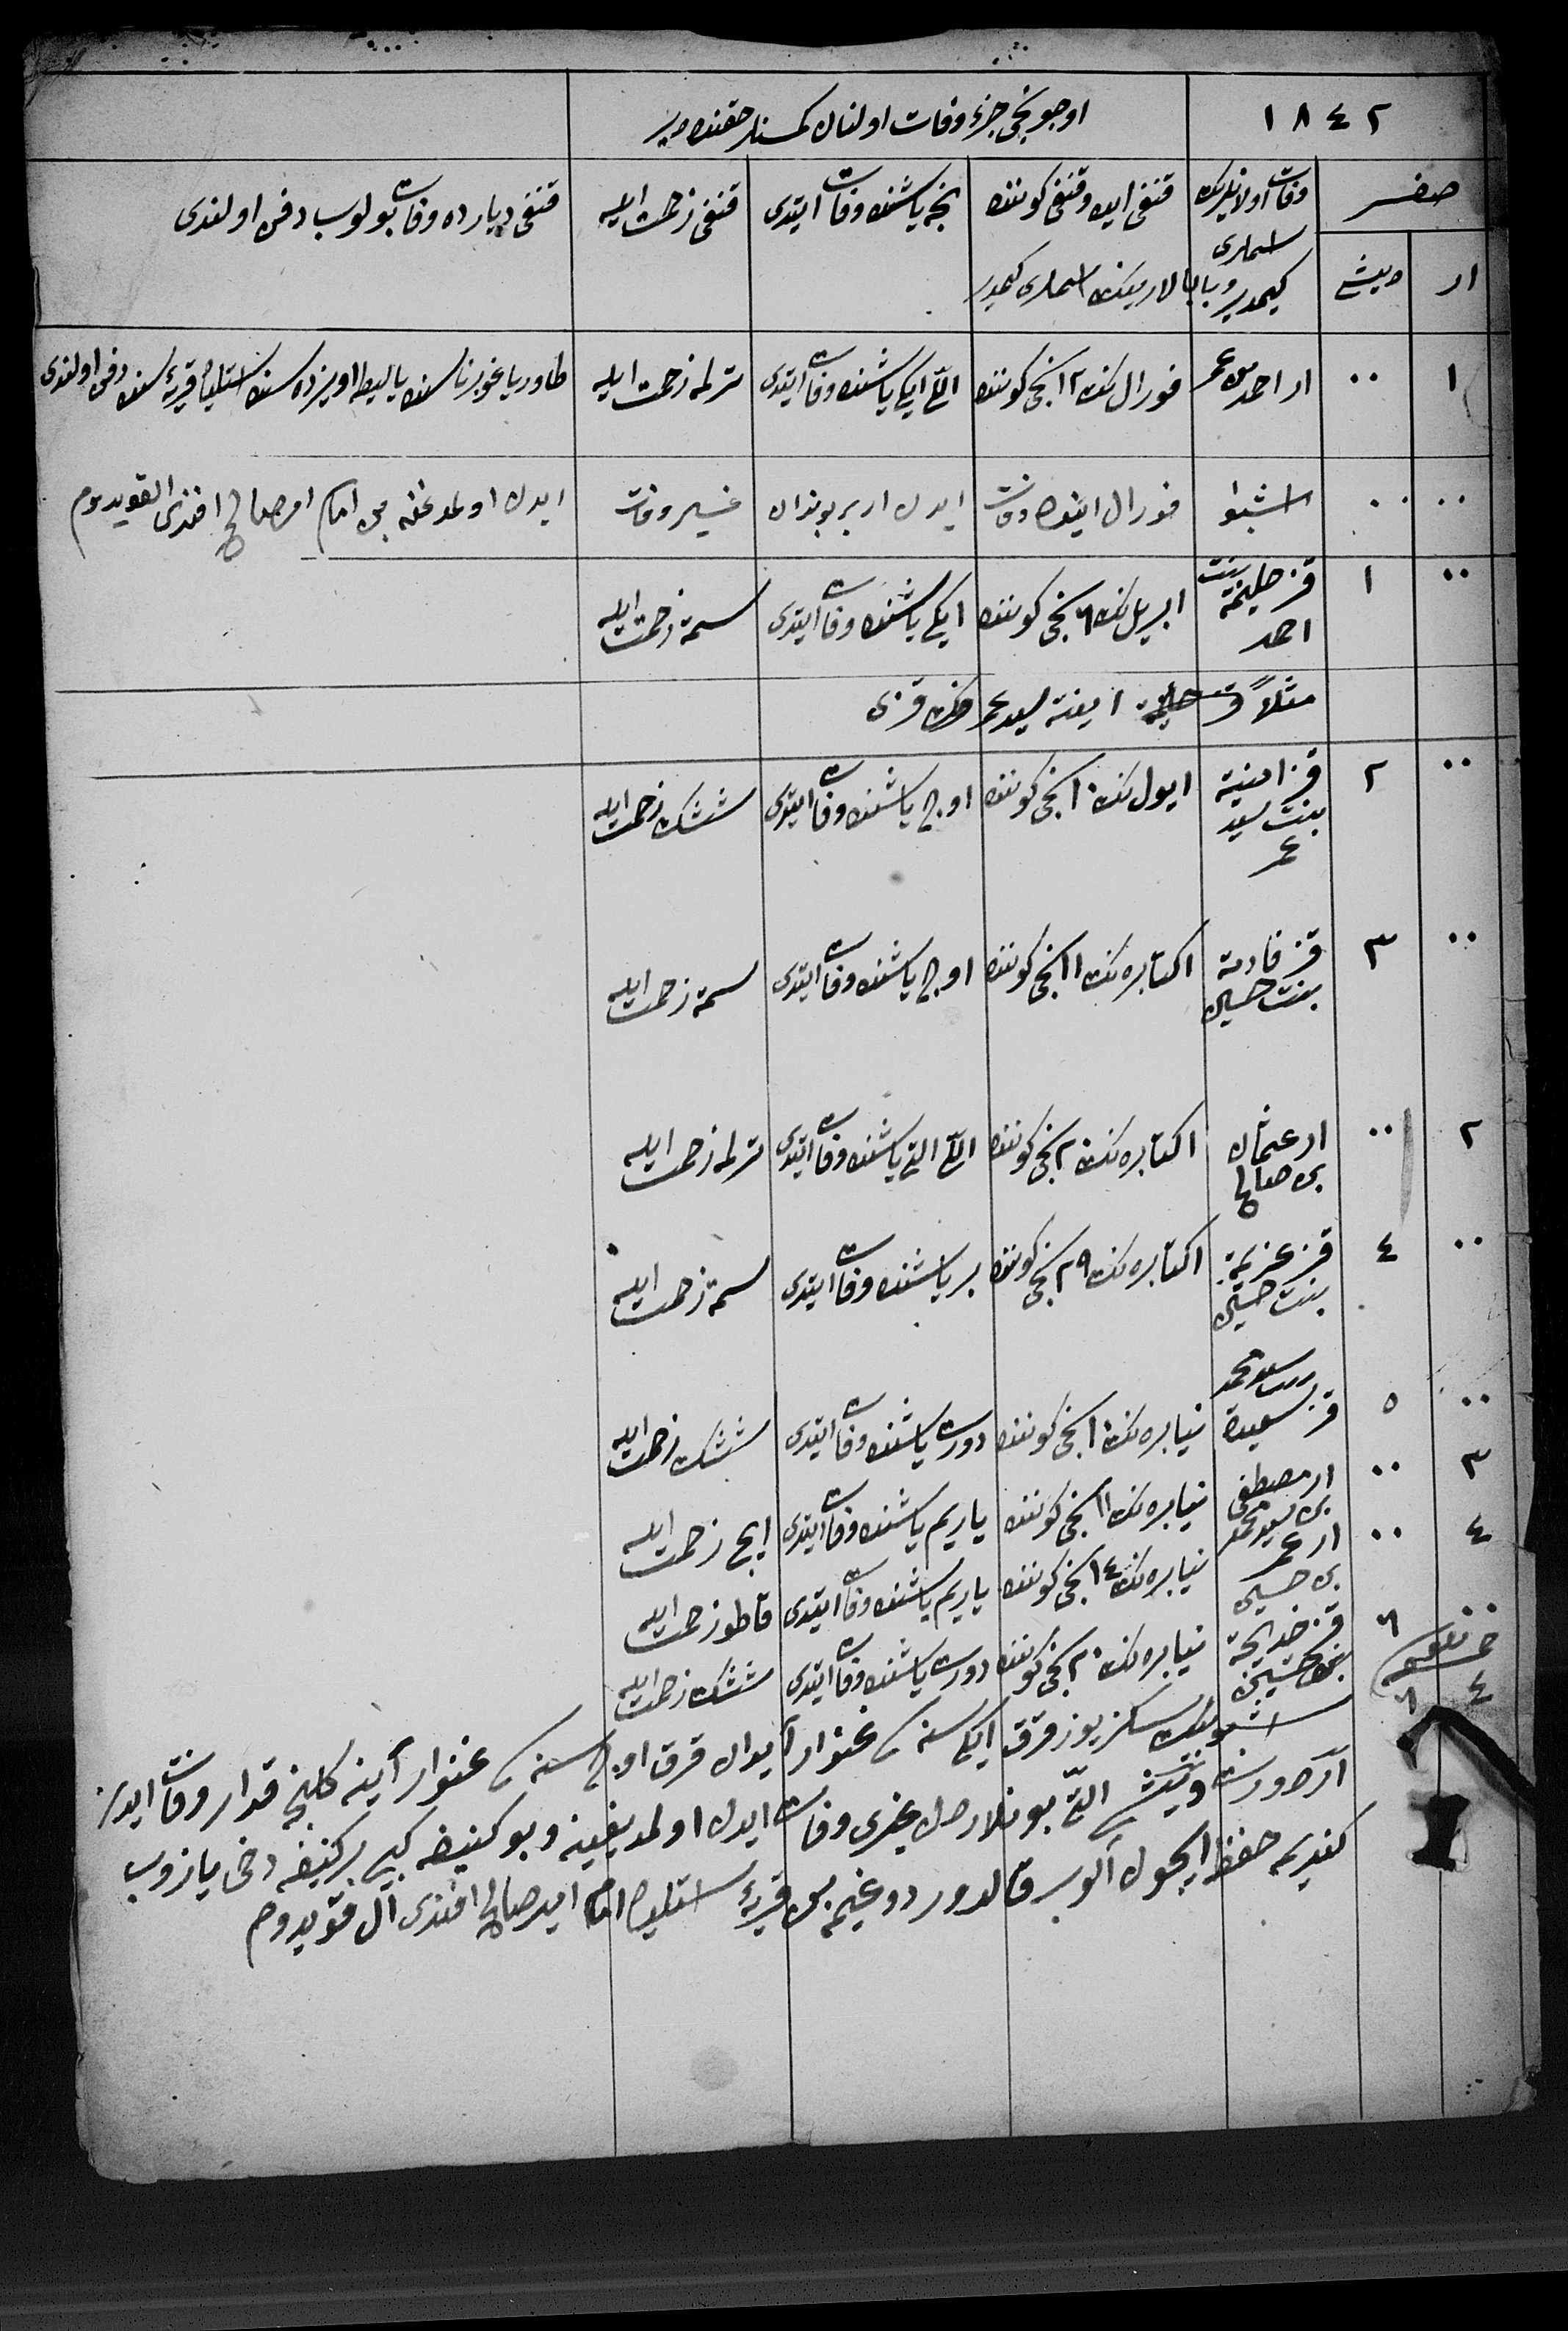 ١٨٤٢
اوجونجی جزء وفات اولنان کمسنلر حقنده در
صفر
ار
دیشی
وفات اولانلرنك اسملری کیمدیر وبابالارینك اسملری کیمدر
قنغی ایده وقنغی کوننده
نچه یاشنده وفات ایتدی
قنغی زحمت ایله
قنغی دیارده وفات بولوب دفن اولندی
١ ٠٠ ار احمد بن عمر فورال نك ١٢نجی کوننده اللی ایکی یاشنده وفات ایتدی ترلمه زحمت ایله طاوریا غوبرناسنده یالیطه اویزده سنده قریه سنده دفن اولندی
٠٠ ٠٠ اشبو فورال اینده وفات ایدن ار بر بوندان غیر وفات ایدن اولمدغنه من امام امیر صالح افندی القویدوم
٠٠ ١ قز حلیمة بنت احمد ابریل نك ٦نجی کوننده ایکی یاشنده وفات ایتدی سمه زحمت ایله
مثلاً قز امینه سید عمر قزی
٠٠ ٢ قز امینة بنت سید عمر ایول نك ١٠نجی کوننده اوچ یاشنده وفات ایتدی ششك زحمت ایله
٠٠ ٣ قز بنت حسین اکتابره نك ١١نجی کوننده اوچ یاشنده وفات ایتدی سمه زحمت ایله
٢ ٠٠ ار عثمان بن صالح اکتابره نك ٢٠نجی کوننده اللی التی یاشنده وفات ایتدی ترلمه زحمت ایله
٠٠ ٤ قز بنت حسین اکتابره نك ٢٩نجی کوننده بر یاشنده وفات ایتدی سمه زحمت ایله
٠٠ ٥ قز سعیدة بنت سید محمد نیابره نك ١٠نجی کوننده دورت یاشنده وفات ایتدی ششك زحمت ایله
٣ ٠٠ ار مصطفی بن سید محمد نیابره نك ١١نجی کوننده یاریم یاشنده وفات ایتدی ایچ زحمت ایله
٤ ٠٠ ار عمر بن حسین نیابره نك ١٤نجی کوننده یاریم یاشنده وفات ایتدی زحمت ایله
٦ قز خدیجة بنت حسین نیابره نك ٢٠نجی کوننده دورت یاشنده وفات ایتدی ششك زحمت ایله
٤ ٦
اشبو بیك سکز یوز قرق ایکی سنه غنوار آیدان قرق اوچ سنه غنوار آینه کلنجه قدار وفات ایدن
ار دورت ودیشی التی بونلاردن غیری وفات ایدن اولمدیغینه وبو کنیغه کبی بر کنیغه دخی یازوب
کندیمه حفظ ایچون آلوب قالدوردوغیمه بن قریه امام امیر صالح افندی ال قویدوم